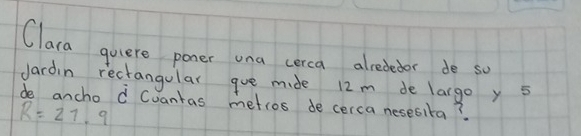 Clara quiere poner una cerca alrededor de so
Jardin rectangular que mide 12 m de largo y 5
de ancho ¿ Cuantas metros de cerca nesesita?
R= 27.9